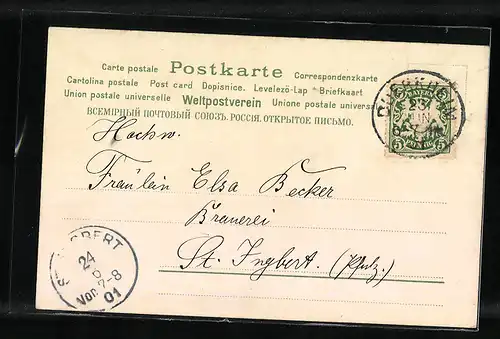 Carte postale Postkarte Correspondenzkarte
Cartolina postale Post card Dopisnice. Levelező-Lap Briefkaart
Union postale universelle Weltpostverein Unione postale universa
ВСЕМІРНЫЙ ПОЧТОВЫЙ СОЮЗЪ. РОССІЯ. ОТКРЫТОЕ ПИСЬМО.
BAYERN
23
JUN
5 PFENNIG 5
Hochw.
Fräulein Elsa Becker
Brauerei
St. Ingbert. (Pfalz.)
ST. INGBERT
24
6
Vor. 7-8
01